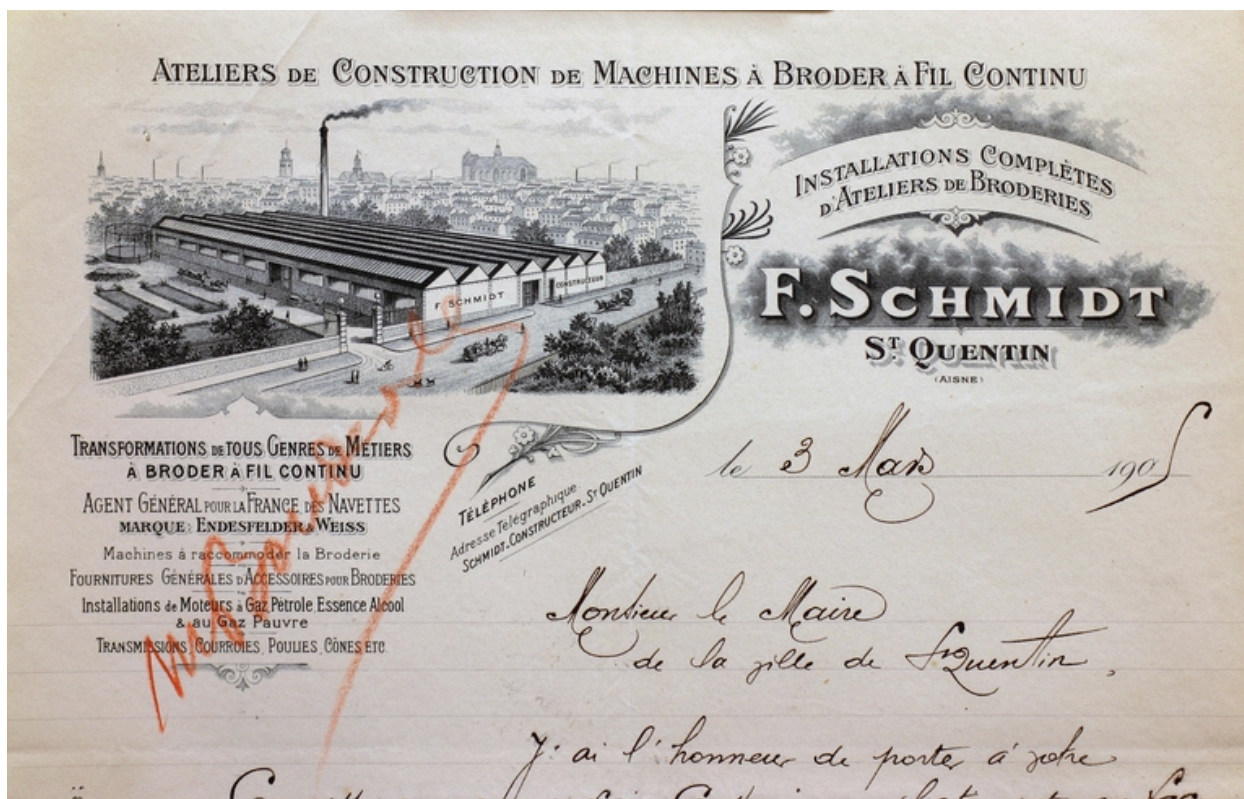 ATELIERS DE CONSTRUCTION DE MACHINES À BRODER À FIL CONTINU
INSTALLATIONS COMPLÈTES
D'ATELIERS DE BRODERIES
F. SCHMIDT
ST QUENTIN
(AISNE)
F. SCHMIDT
CONSTRUCTEUR
TRANSFORMATIONS DE TOUS GENRES DE MÉTIERS
À BRODER À FIL CONTINU
AGENT GÉNÉRAL POUR LA FRANCE DES NAVETTES
MARQUE: ENDESFELDER & WEISS
Machines à raccommoder la Broderie
FOURNITURES GÉNÉRALES D'ACCESSOIRES POUR BRODERIES
Installations de Moteurs à Gaz, Pétrole, Essence Alcool
& au Gaz Pauvre
TRANSMISSIONS, COURROIES, POULIES, CÔNES ETC.
TÉLÉPHONE
Adresse Télégraphique
SCHMIDT-CONSTRUCTEUR-ST QUENTIN
le 3 Mars 1905
Monsieur le Maire
de la ville de St Quentin,
J'ai l'honneur de porter à votre